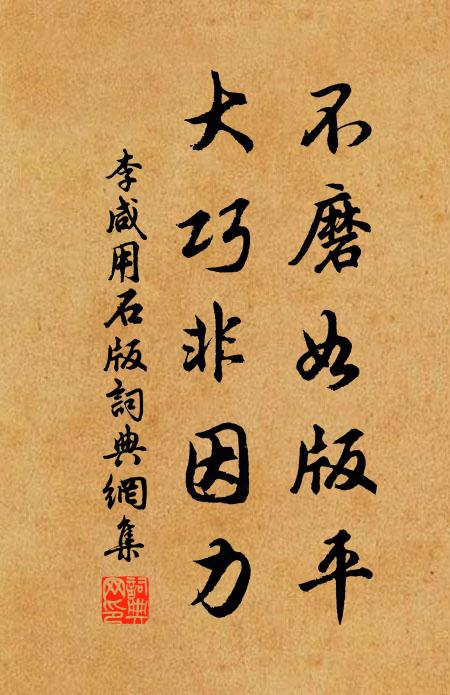 不磨如版平
大巧非因力
李咸用石版詞典網集
詞典
网印